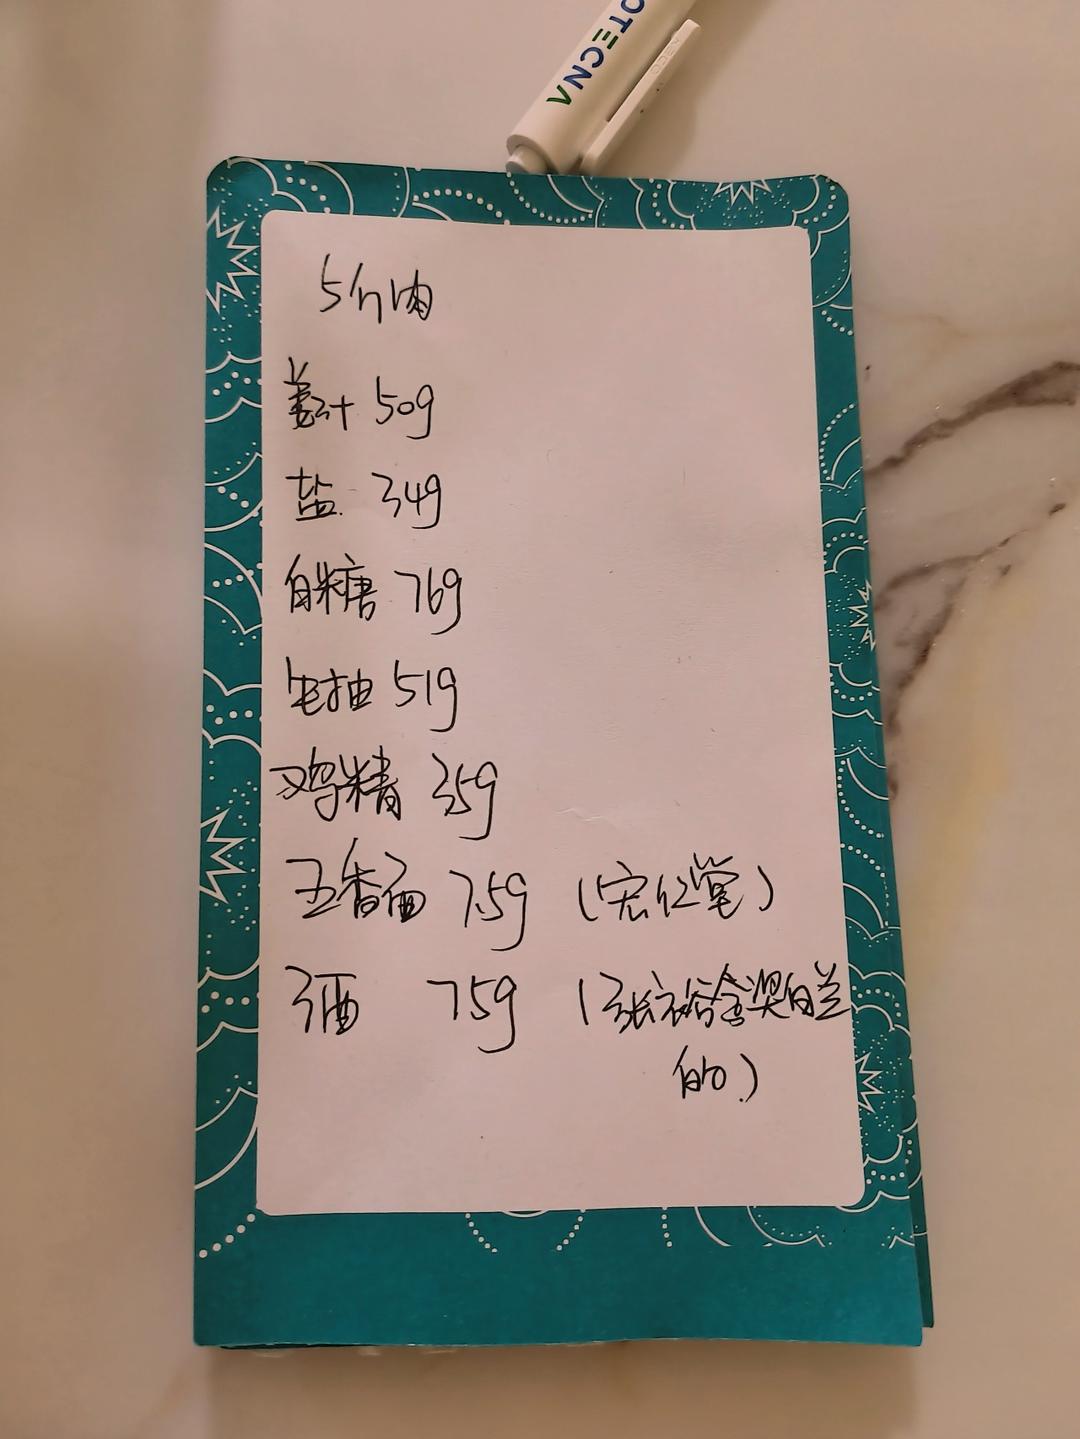 OTECNA
5斤肉
姜汁 50g
盐 34g
白糖 76g
生抽 51g
鸡精 35g
五香面 7.5g (宏仁堂)
酒 75g (张裕金奖白兰
的)